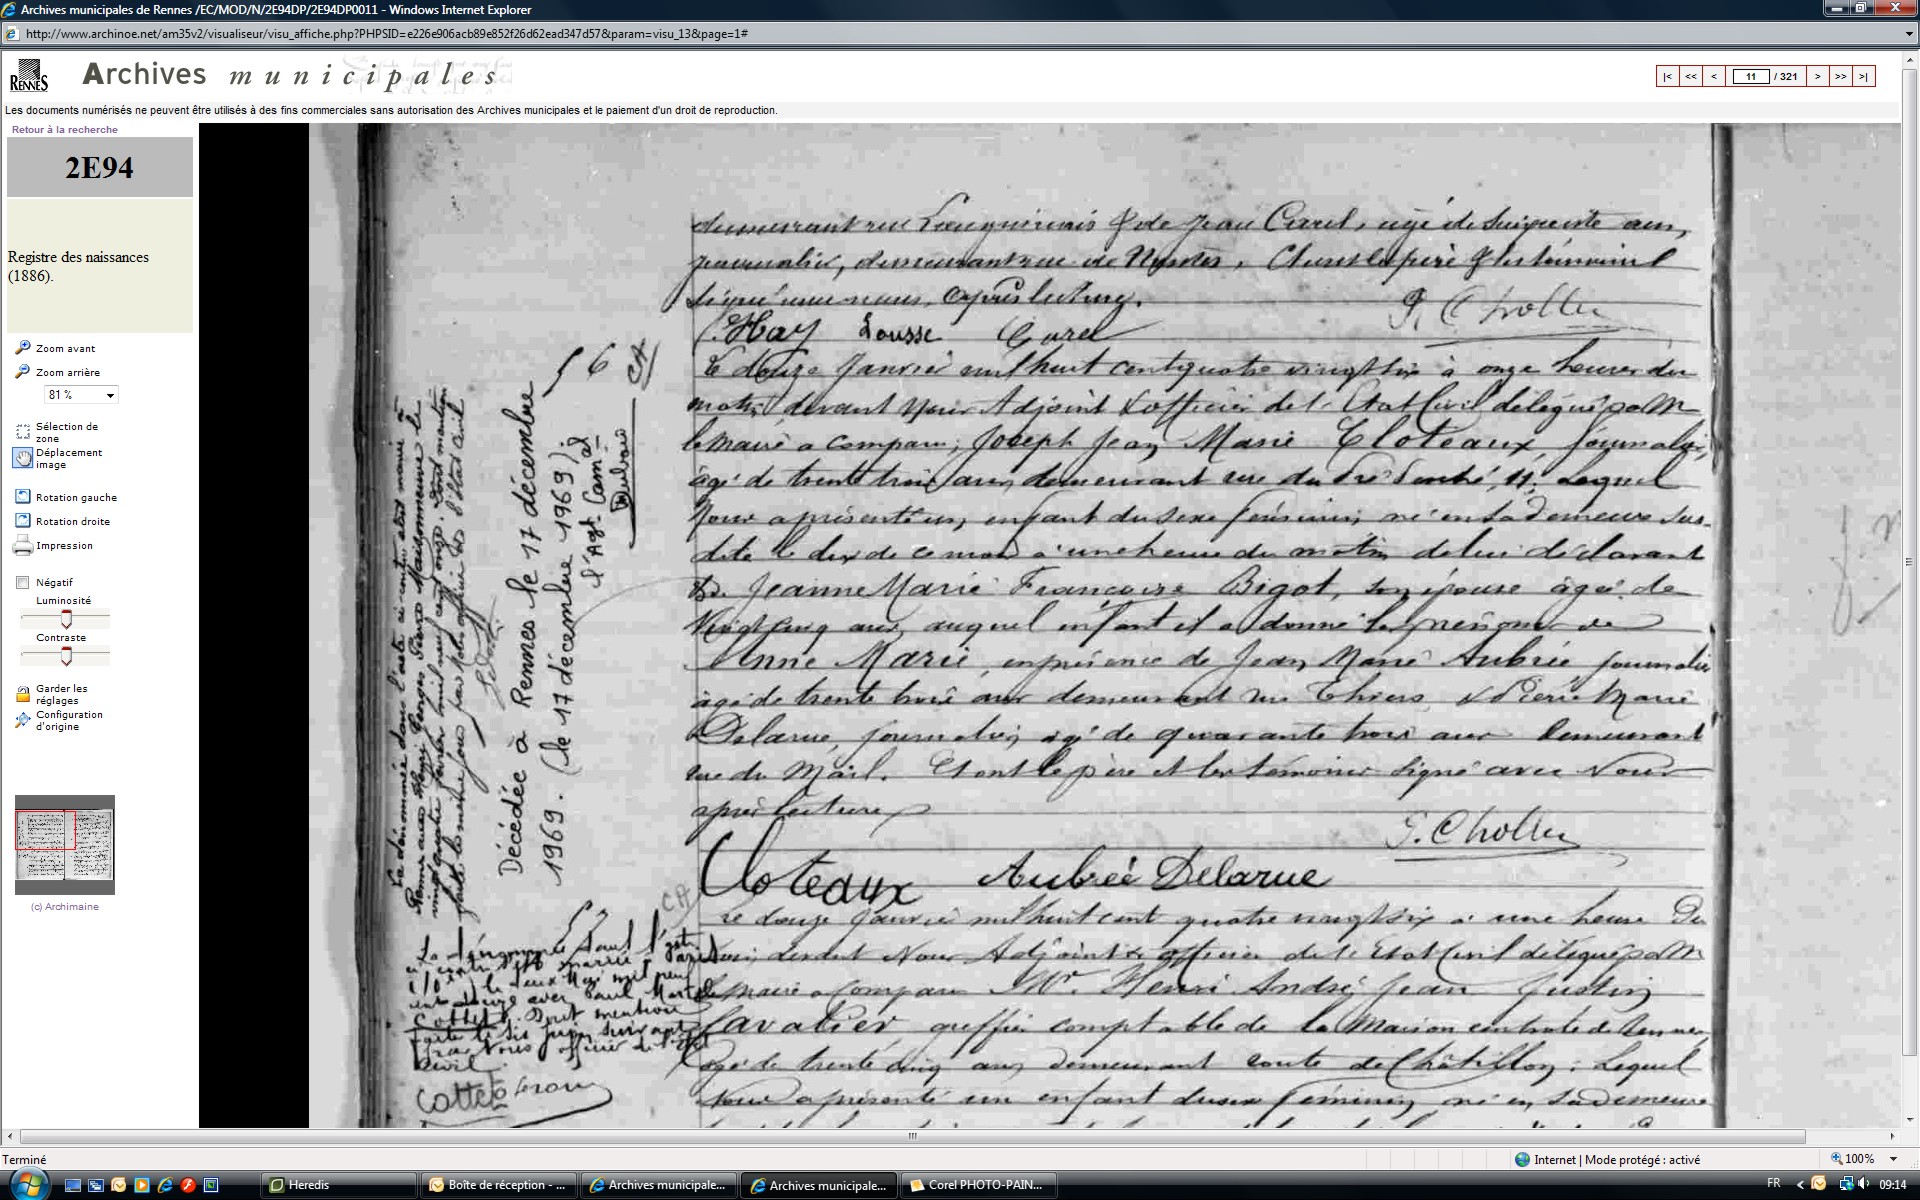 Archives municipales de Rennes /EC/MOD/N/2E94DP/2E94DP0011 - Windows Internet Explorer
http://www.archinoe.net/am35v2/visualiseur/visu_affiche.php?PHPSID=e226e906acb89e852f26d62ead347d57&param=visu_13&page=1#
RENNES
Archives municipales
|< << < 11 / 321 > >> >|
Les documents numérisés ne peuvent être utilisés à des fins commerciales sans autorisation des Archives municipales et le paiement d'un droit de reproduction.
Retour à la recherche
2E94
Registre des naissances
(1886).
Zoom avant
Zoom arrière
81 %
Sélection de
zone
Déplacement
image
Rotation gauche
Rotation droite
Impression
Négatif
Luminosité
Contraste
Garder les
réglages
Configuration
d'origine
(c) Archimaine
demeurant rue & de Jean Carel, âgé de ans,
journalier, demeurant rue de Nantes. Et ont le père & les témoins
signé avec nous, après lecture.
Hay Lousse Carel
Le douze Janvier mil huit cent quatre vingt six à onze heures du
matin, devant Nous Adjoint & officier de l'Etat Civil délégué par M.
le Maire a comparu, Joseph Jean Marie Cloteaux, journalier,
âgé de trente trois ans, demeurant rue du Pré Perché, 11. Lequel
Nous a présenté un enfant du sexe féminin, né en sa demeure sus-
dite le dix de ce mois à une heure du matin de lui déclarant
& de Jeanne Marie Françoise Bigot, son épouse âgée de
Vingt cinq ans, auquel enfant il a donné les prénoms de
Anne Marie, en présence de Jean Marie Aubrée journalier
âgé de trente trois ans demeurant rue Thiers, & Pierre Marie
Delarue, journalier, âgé de quarante trois ans demeurant
rue du Mail. Et ont le père et les témoins signé avec Nous
après lecture
Cloteaux Aubrée Delarue
Le douze Janvier mil huit cent quatre vingt six à une heure du
soir, devant Nous Adjoint & officier de l'Etat Civil délégué par M.
le Maire a comparu Mr. Henri André Jean Justin
Cavalier, greffier comptable de la Maison centrale de Rennes,
âgé de trente cinq ans demeurant route de Châtillon ; Lequel
Nous a présenté un enfant du sexe féminin, né en sa demeure
La dénommée dans l'acte ci-contre s'est mariée à
Rennes avec Henri Georges Maisonneuve le
vingt quatre mil neuf cent onze. Dont mention
faite le même jour par Nous officier de l'état civil
Décédée à Rennes le 17 décembre
1969. (le 17 décembre 1969)
l'Agt Coal
56
CA
57
CA
La dénommée dans l'acte
ci-contre s'est mariée à Paris
(10e) le deux Mai mil neuf
cent douze avec Paul
Cottet. Dont mention
faite le six juin suivant
par Nous officier de l'état
civil
Terminé
Internet | Mode protégé : activé
100%
Heredis
Boîte de réception - ...
Archives municipale...
Archives municipale...
Corel PHOTO-PAIN...
FR
09:14